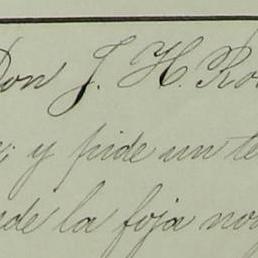 Don J. H. Ro
y pide un te
de la foja no